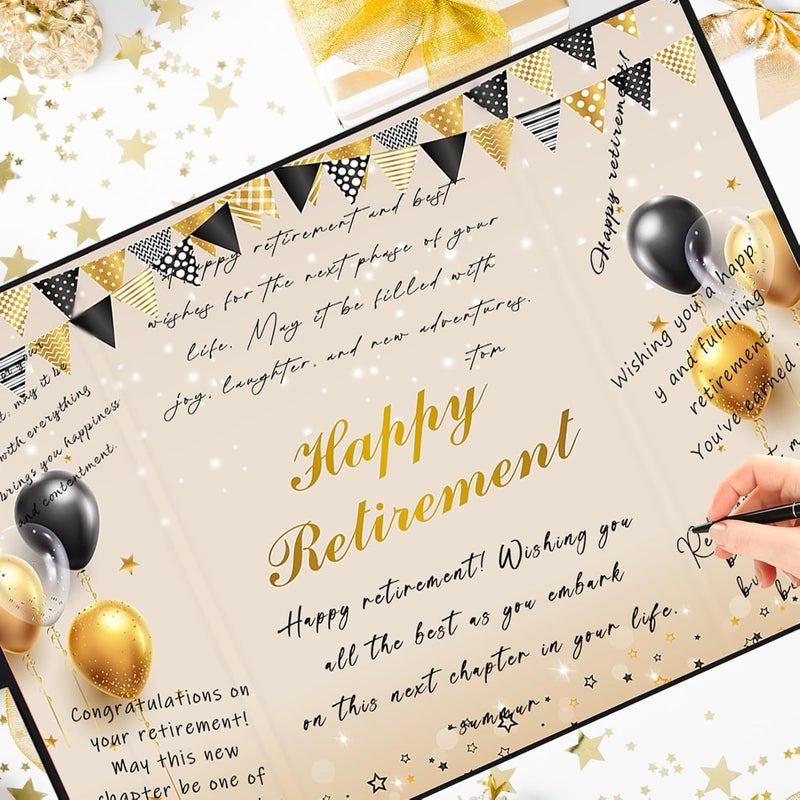 Happy retirement!
Happy retirement and best
wishes for the next phase of your
life. May it be filled with
joy, laughter, and new adventures.
Tom
may it be
with everything
brings you happiness
and contentment.
Wishing you a happ
y and fulfilling
retirement.
You've earned
Happy
Retirement
Happy retirement! Wishing you
all the best as you embark
on this next chapter in your life.
-summur
Congratulations on
your retirement!
May this new
chapter be one of